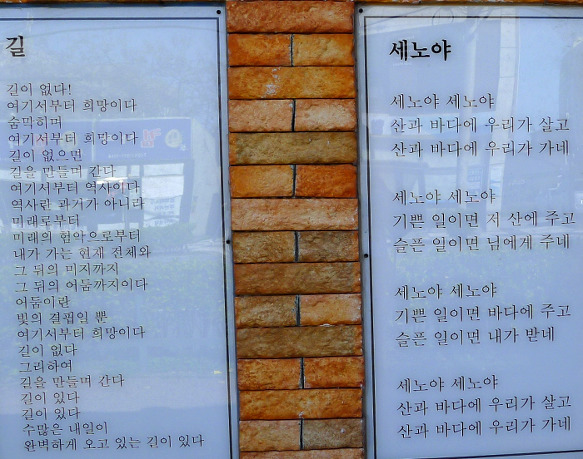 길
길이 없다!
여기서부터 희망이다
숨막히며
여기서부터 희망이다
길이 없으면
길을 만들며 간다
여기서부터 역사이다
역사란 과거가 아니라
미래로부터
미래의 험악으로부터
내가 가는 현재 전체와
그 뒤의 미지까지
그 뒤의 어둠까지이다
어둠이란
빛의 결핍일 뿐
여기서부터 희망이다
길이 없다
그리하여
길을 만들며 간다
길이 있다
길이 있다
수많은 내일이
완벽하게 오고 있는 길이 있다
세노야
세노야 세노야
산과 바다에 우리가 살고
산과 바다에 우리가 가네
세노야 세노야
기쁜 일이면 저 산에 주고
슬픈 일이면 님에게 주네
세노야 세노야
기쁜 일이면 바다에 주고
슬픈 일이면 내가 받네
세노야 세노야
산과 바다에 우리가 살고
산과 바다에 우리가 가네